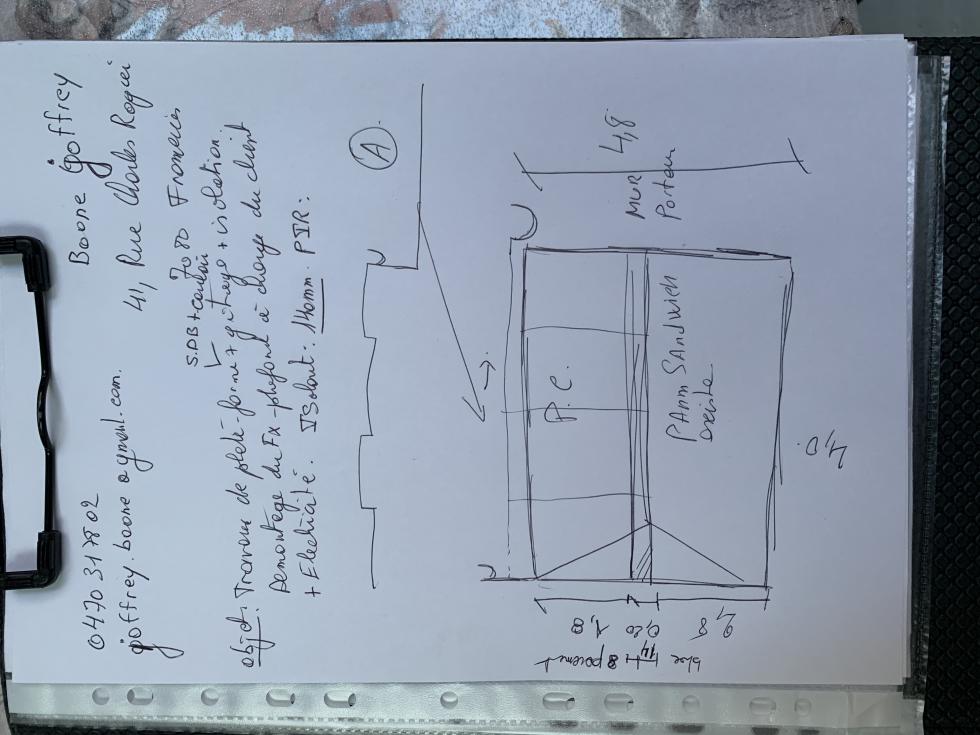 0470 317802 Boone Goffrey
goffrey.boone@gmail.com. 41, Rue Charles Rogier
7080 Frameries
S.DB + couloir
objet: Travaux de plate-forme + gitage + isolation.
Demontage du Fx-plafond à charge du client
+ Electricité. Isolant: 140mm. PIR:
A
P.C.
PAnn SAndwich
existe
MUR
Porteur
4,8
4,0
1,8
0,20
2,8
bloc
14
+ 8 parement